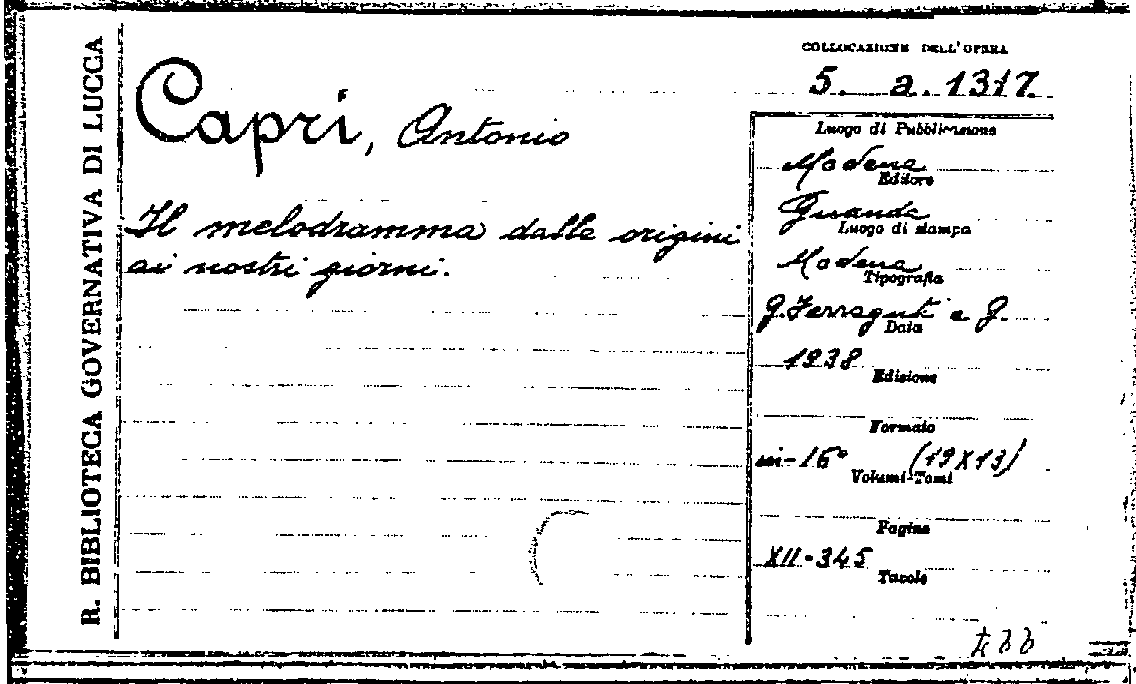 R. BIBLIOTECA GOVERNATIVA DI LUCCA
Capri, Antonio
Il melodramma dalle origini
ai nostri giorni.
COLLOCAZIONE DELL'OPERA
5. a. 1317.
Luogo di Pubblicazione
Modena
Editore
Guanda
Luogo di stampa
Modena
Tipografia
G. Ferraguti e G.
Data
1938
Edizione
Formato
in-16° (19X13)
Volumi-Tomi
Pagine
XII-345
Tavole